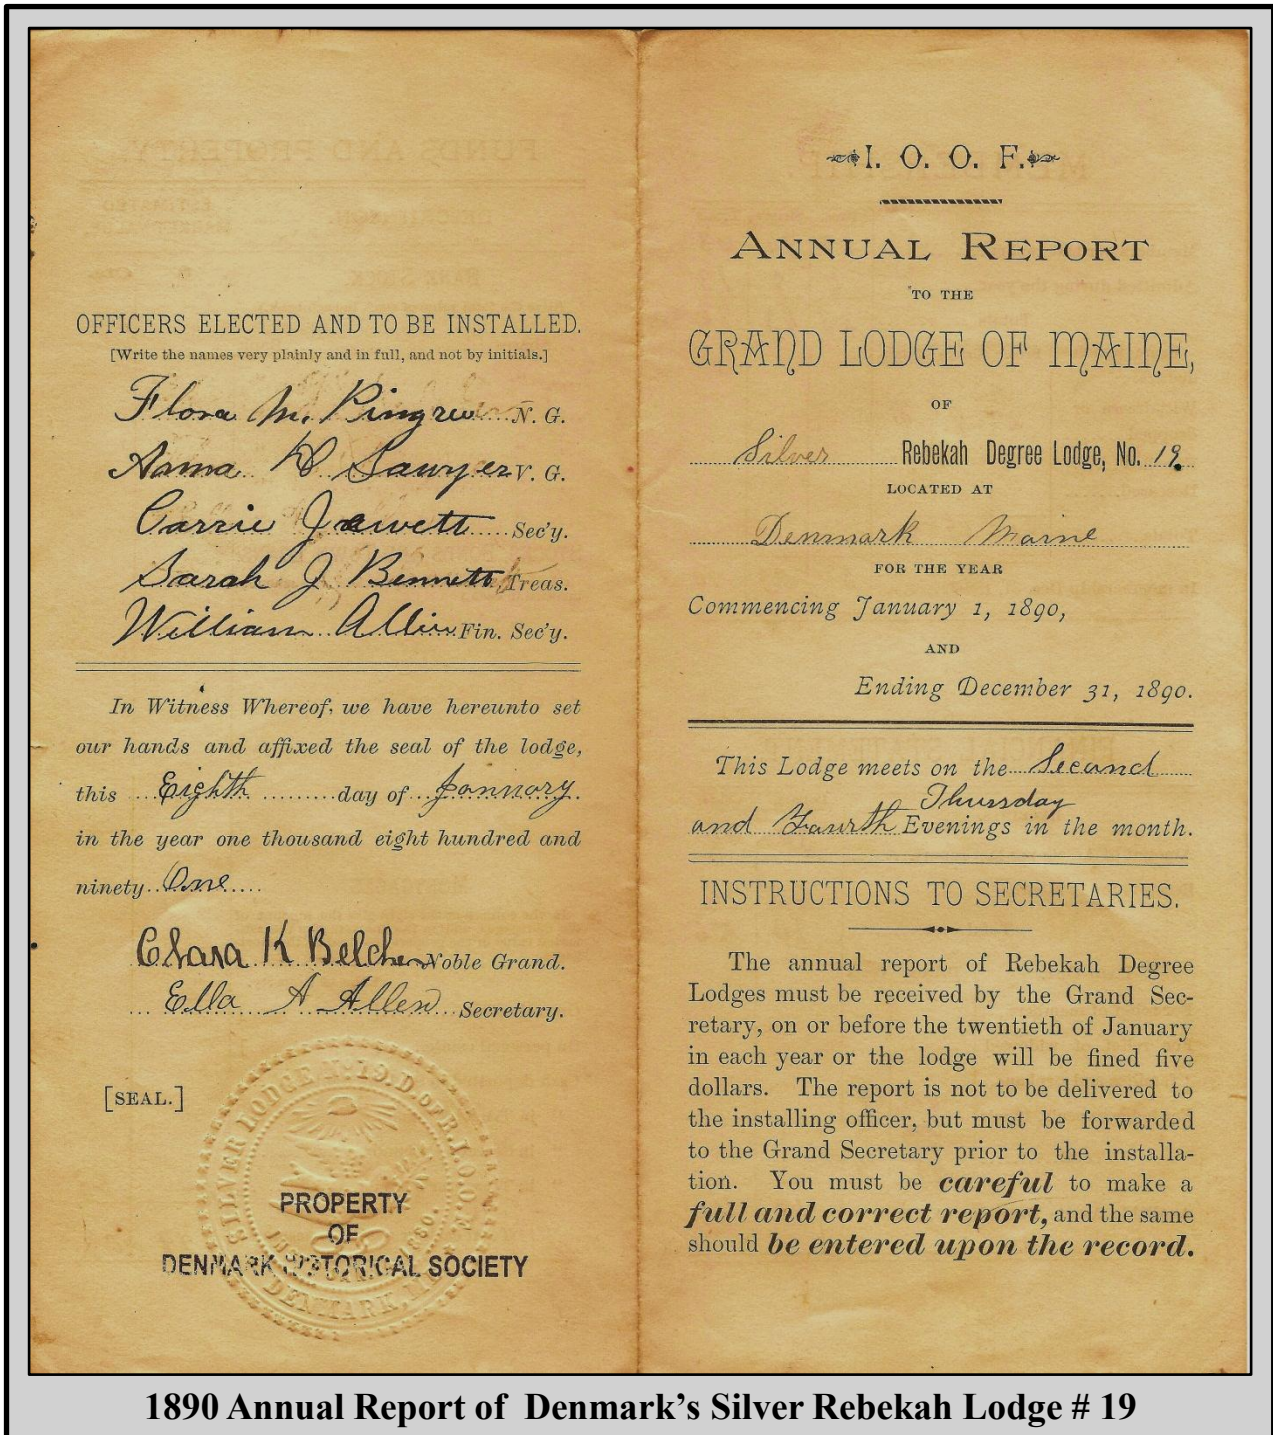 OFFICERS ELECTED AND TO BE INSTALLED.
[Write the names very plainly and in full, and not by initials.]
Flora M. Pingree N. G.
Anna D Sawyer V. G.
Carrie Jewett Sec'y.
Sarah J Bennett Treas.
William Allen Fin. Sec'y.
In Witness Whereof, we have hereunto set
our hands and affixed the seal of the lodge,
this Eighth day of January.
in the year one thousand eight hundred and
ninety One
Clara K Belcher Noble Grand.
Ella A Allen Secretary.
[SEAL.]
SILVER LODGE, 19, D. OF R. I. O. O. F.
DENMARK,
PROPERTY
OF
DENMARK HISTORICAL SOCIETY
I. O. O. F.
ANNUAL REPORT
TO THE
GRAND LODGE OF MAINE,
OF
Silver Rebekah Degree Lodge, No. 19.
LOCATED AT
Denmark Maine
FOR THE YEAR
Commencing January 1, 1890,
AND
Ending December 31, 1890.
This Lodge meets on the Second
Thursday
and Fourth Evenings in the month.
INSTRUCTIONS TO SECRETARIES.
The annual report of Rebekah Degree
Lodges must be received by the Grand Sec-
retary, on or before the twentieth of January
in each year or the lodge will be fined five
dollars. The report is not to be delivered to
the installing officer, but must be forwarded
to the Grand Secretary prior to the installa-
tion. You must be careful to make a
full and correct report, and the same
should be entered upon the record.
1890 Annual Report of Denmark's Silver Rebekah Lodge # 19